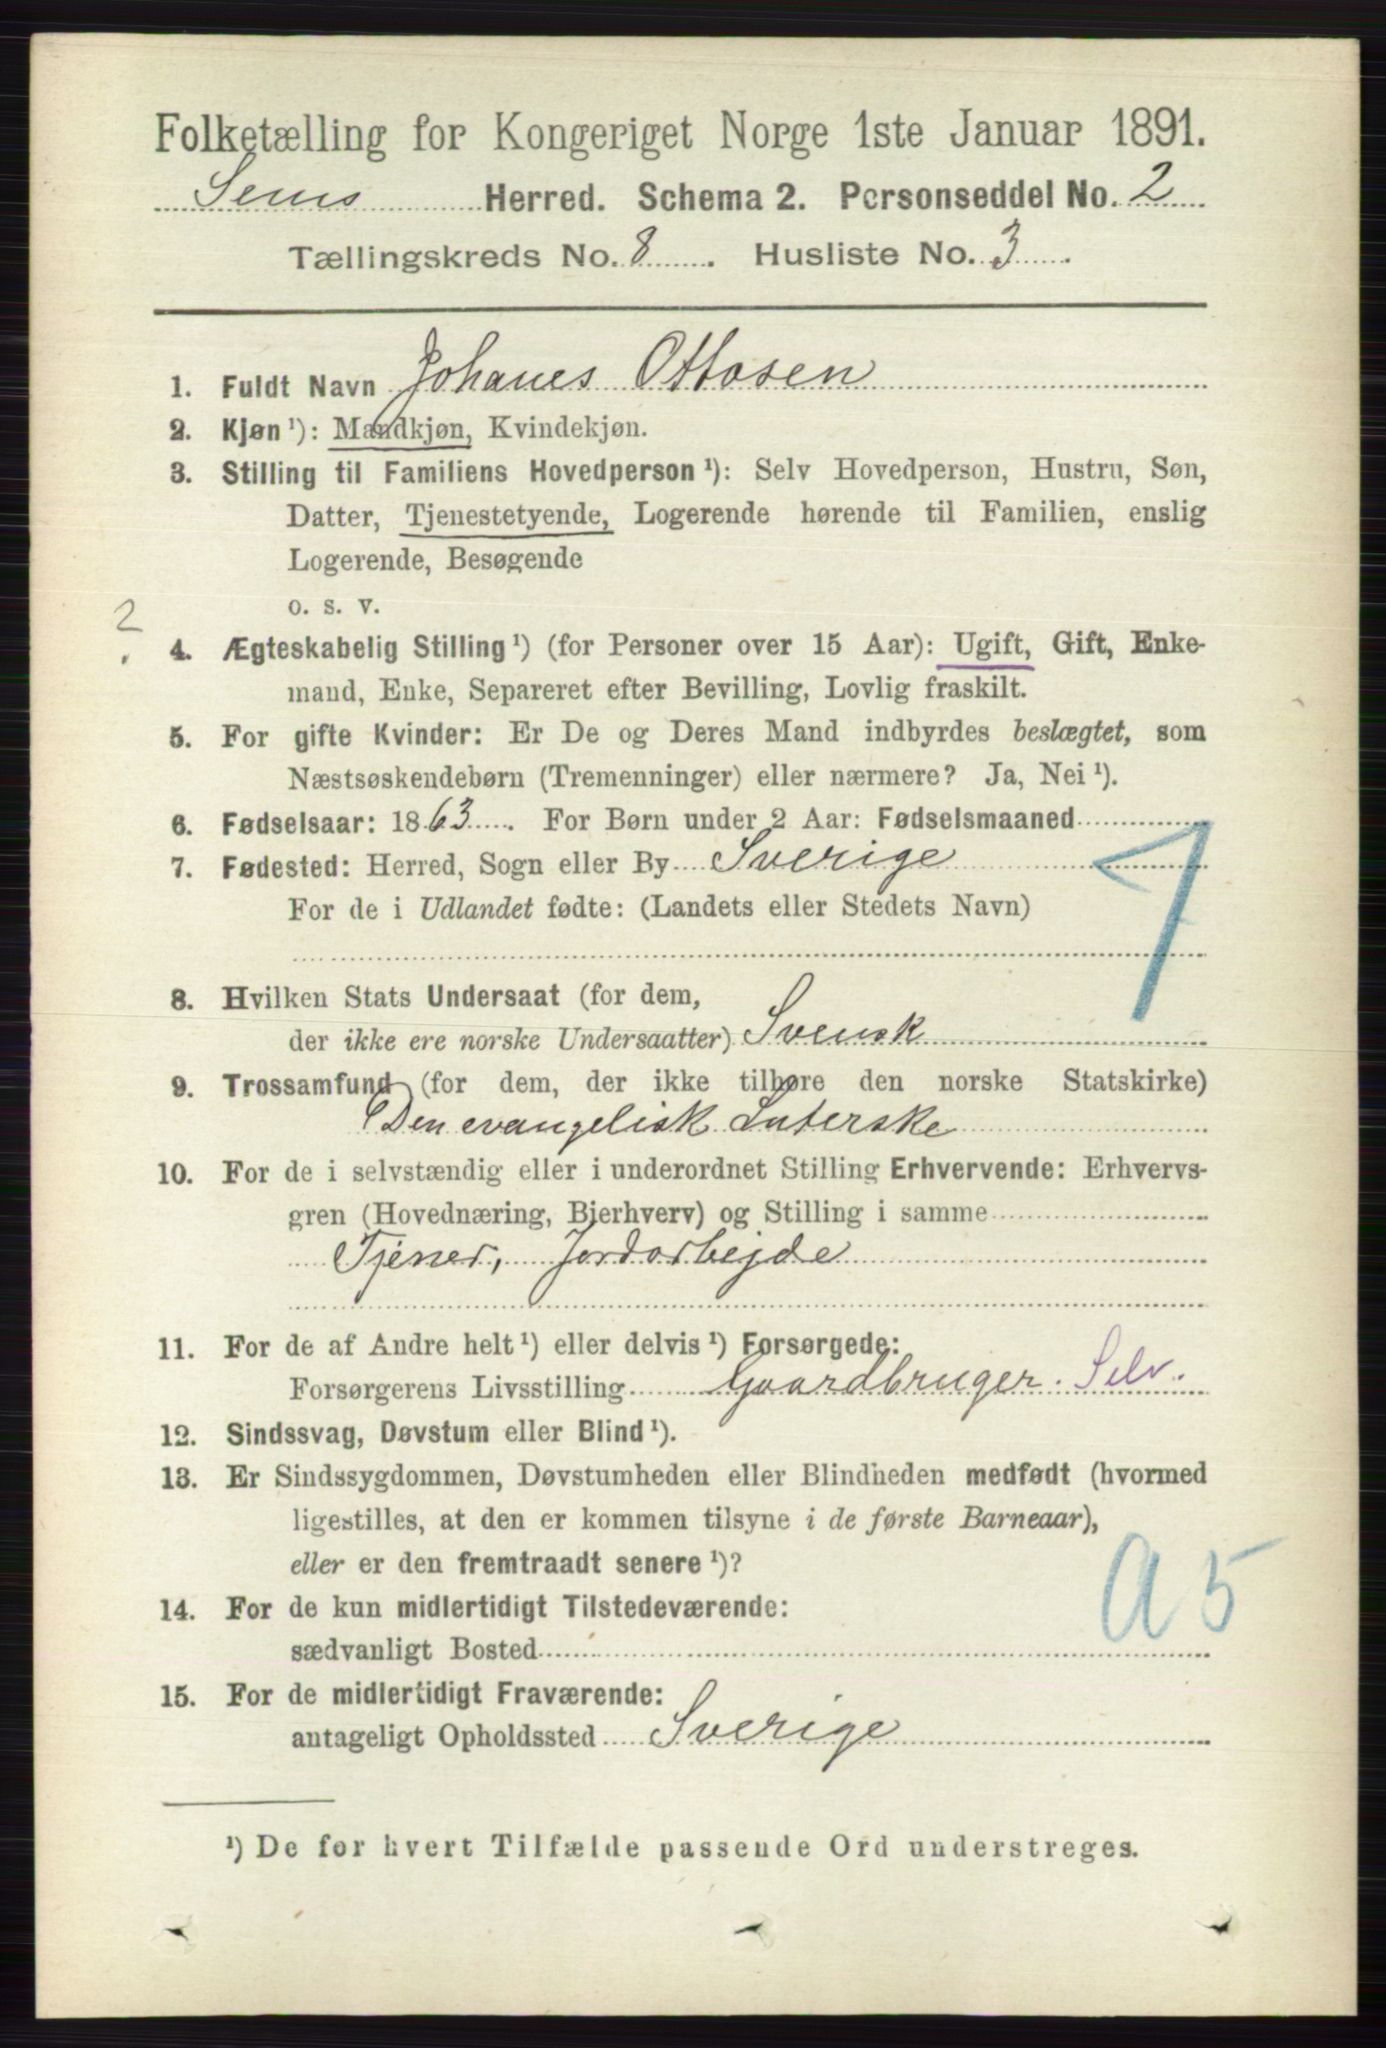 Folketælling for Kongeriget Norge 1ste Januar 1891.
Sems Herred. Schema 2. Personseddel No. 2
Tællingskreds No. 8. Husliste No. 3.
1. Fuldt Navn Johanes Ottosen
2. Kjøn ¹): Mandkjøn, Kvindekjøn.
3. Stilling til Familiens Hovedperson ¹): Selv Hovedperson, Hustru, Søn,
Datter, Tjenestetyende, Logerende hørende til Familien, enslig
Logerende, Besøgende
o. s. v.
2
4. Ægteskabelig Stilling ¹) (for Personer over 15 Aar): Ugift, Gift, Enke-
mand, Enke, Separeret efter Bevilling, Lovlig fraskilt.
5. For gifte Kvinder: Er De og Deres Mand indbyrdes beslægtet, som
Næstsøskendebørn (Tremenninger) eller nærmere? Ja, Nei ¹).
6. Fødselsaar: 1863. For Børn under 2 Aar: Fødselsmaaned
7. Fødested: Herred, Sogn eller By Sverige
For de i Udlandet fødte: (Landets eller Stedets Navn)
1
8. Hvilken Stats Undersaat (for dem,
der ikke ere norske Undersaatter) Svensk
9. Trossamfund (for dem, der ikke tilhøre den norske Statskirke)
Den evangelisk Luterske
10. For de i selvstændig eller i underordnet Stilling Erhvervende: Erhvervs-
gren (Hovednæring, Bierhverv) og Stilling i samme
Tjener, Jordarbejde
11. For de af Andre helt ¹) eller delvis ¹) Forsørgede:
Forsørgerens Livsstilling Gaardbruger. Selv.
12. Sindssvag, Døvstum eller Blind ¹).
13. Er Sindssygdommen, Døvstumheden eller Blindheden medfødt (hvormed
ligestilles, at den er kommen tilsyne i de første Barneaar),
eller er den fremtraadt senere ¹)?
a 5
14. For de kun midlertidigt Tilstedeværende:
sædvanligt Bosted
15. For de midlertidigt Fraværende:
antageligt Opholdssted Sverige
¹) De for hvert Tilfælde passende Ord understreges.